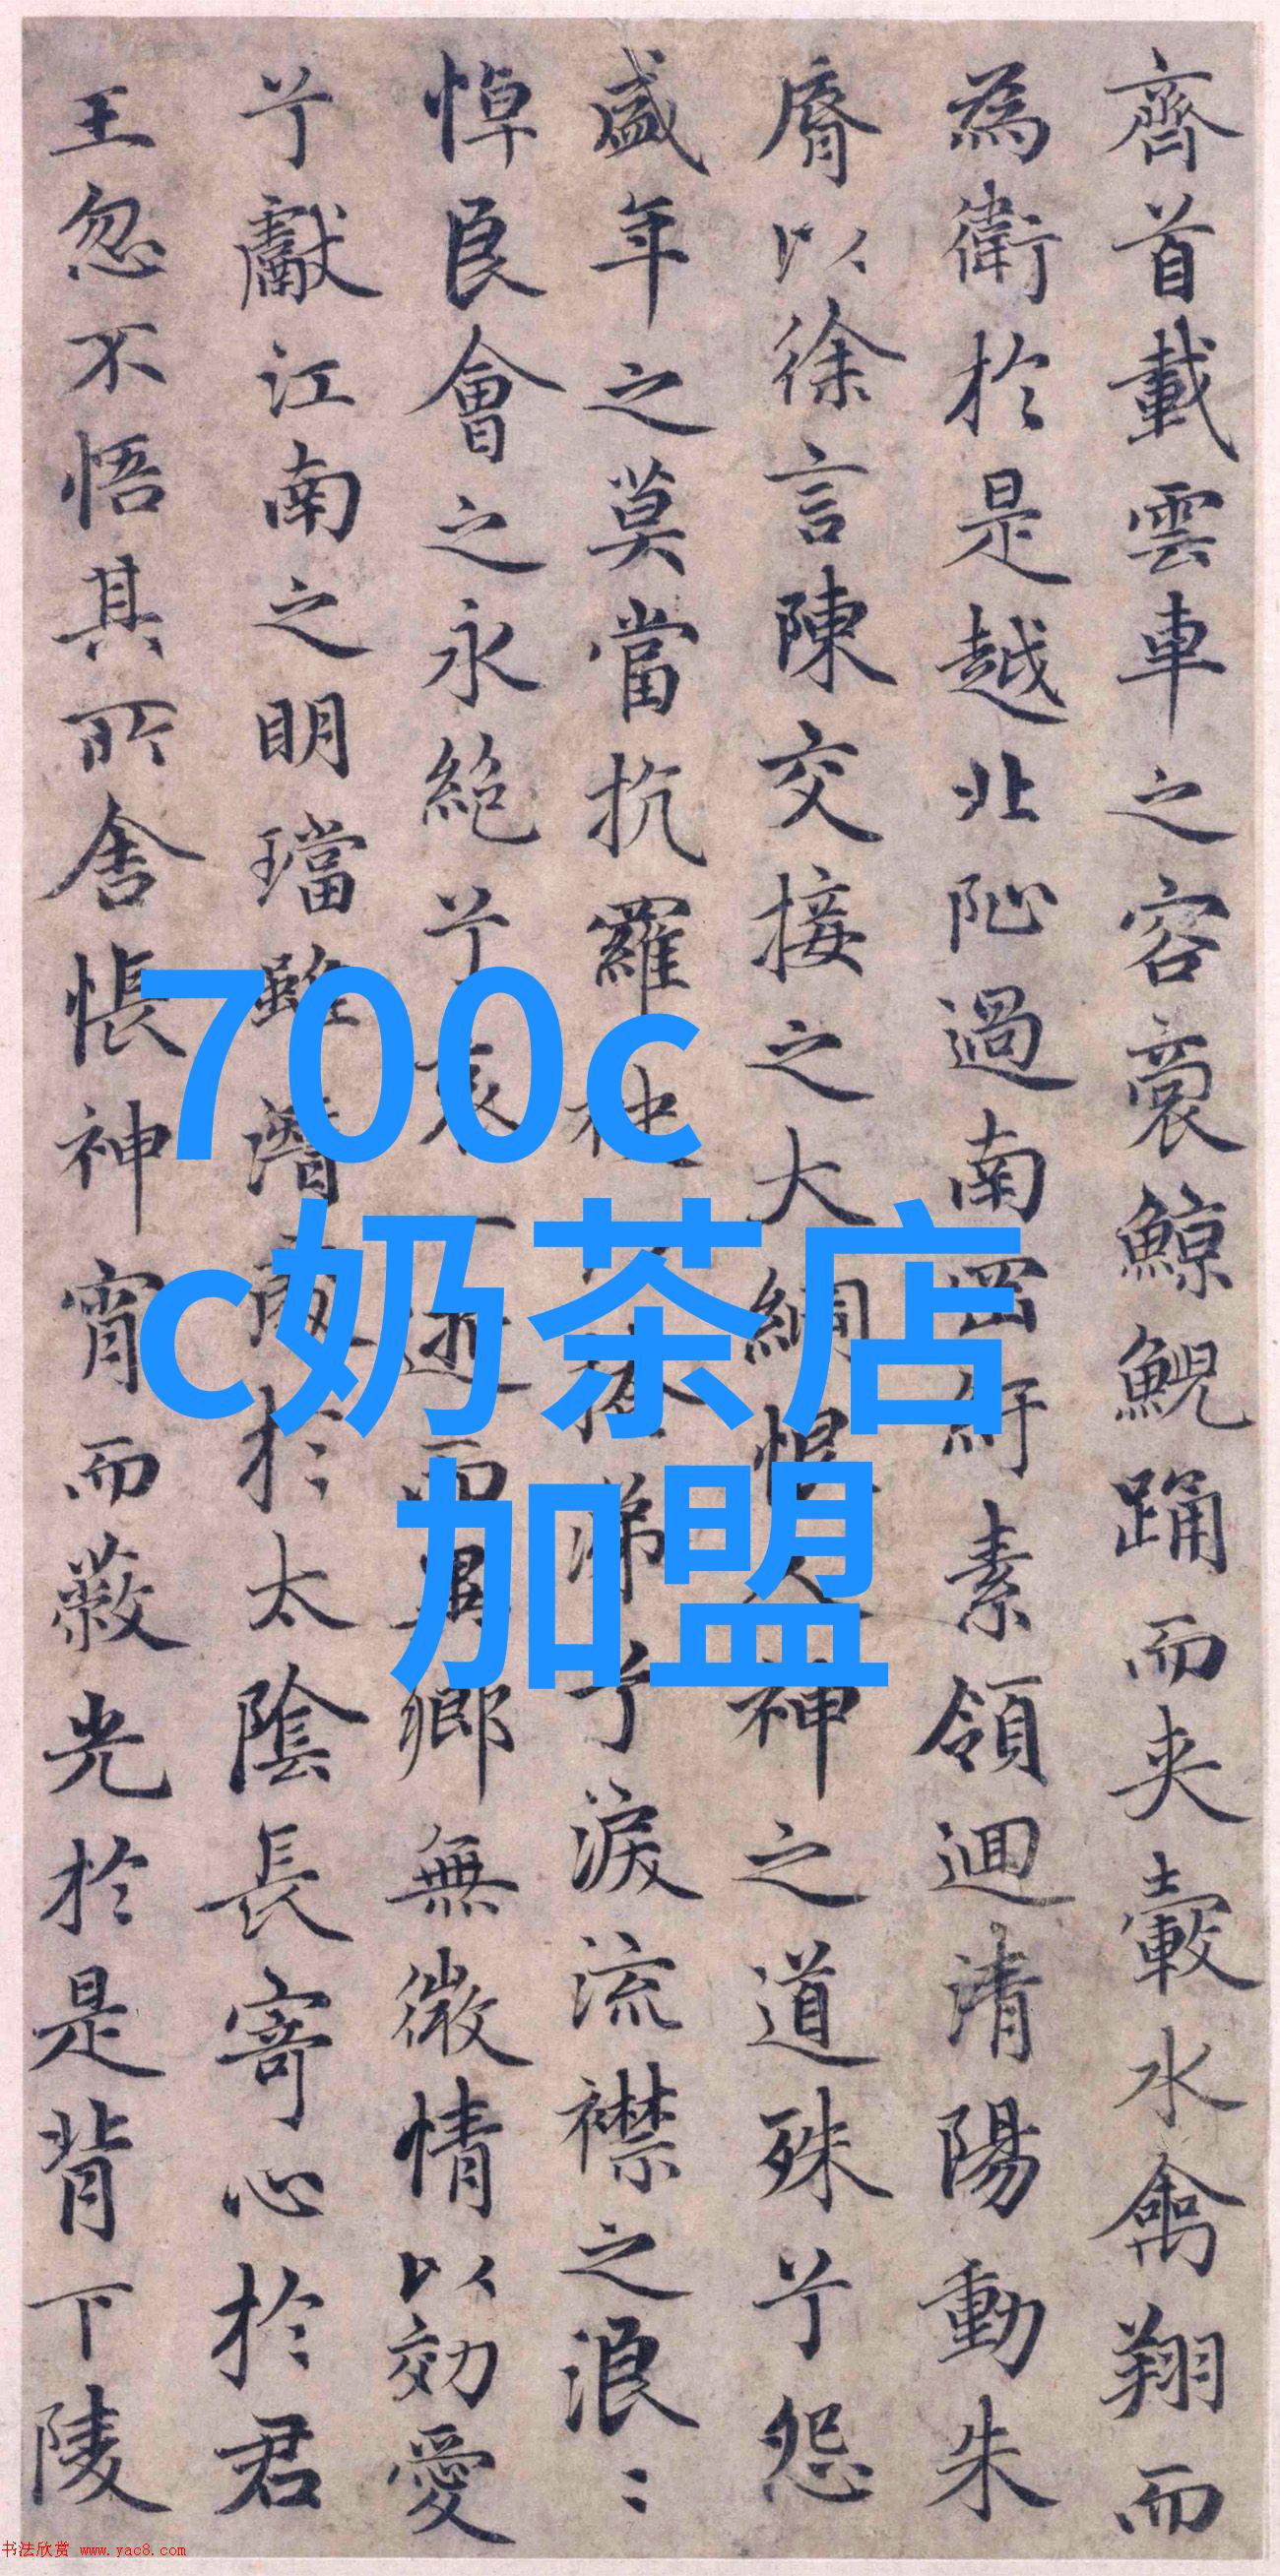 齊首載雲車之容裔鯨鯢踊而夾轂水禽翔而
為衛於是越北阯過南岡紆素領迴清陽動朱
脣以徐言陳交接之大綱恨人神之道殊兮怨
盛年之莫當抗羅袂以掩涕兮淚流襟之浪〻
悼良會之永絕兮哀一逝而異鄉無微情以効愛
兮獻江南之明璫雖潛處於太陰長寄心於君
王忽不悟其所舍悵神宵而蔽光於是背下陵
700c
c奶茶店
加盟
书法欣赏 www.yac8.com